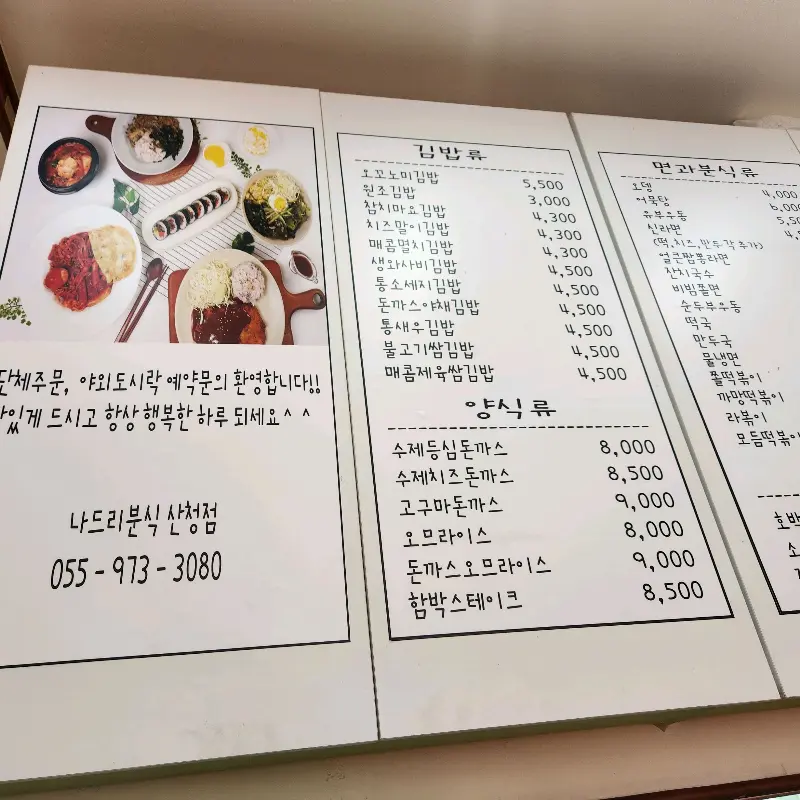 단체주문, 야외도시락 예약문의 환영합니다!!
맛있게 드시고 항상 행복한 하루 되세요^ ^
나드리분식 산청점
055 - 973 - 3080
김밥류
오꼬노미김밥 5,500
원조김밥 3,000
참치마요김밥 4,300
치즈말이김밥 4,300
매콤멸치김밥 4,300
생와사비김밥 4,500
통소세지김밥 4,500
돈까스야채김밥 4,500
통새우김밥 4,500
불고기쌈김밥 4,500
매콤제육쌈김밥 4,500
양식류
수제등심돈까스 8,000
수제치즈돈까스 8,500
고구마돈까스 9,000
오므라이스 8,000
돈까스오므라이스 9,000
함박스테이크 8,500
면과분식류
오뎅 4,000
어묵탕 6,000
유부우동
신라면
(떡,치즈,만두각 추가)
얼큰짬뽕라면
잔치국수
비빔쫄면
순두부우동
떡국
만두국
물냉면
쫄떡볶이
까망떡볶이
라볶이
모듬떡볶이